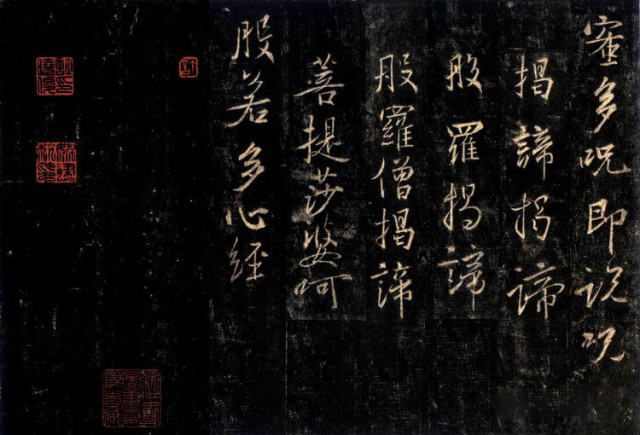 蜜多呪即說呪
揭諦揭諦
般羅揭諦
般羅僧揭諦
菩提莎婆呵
般若多心經